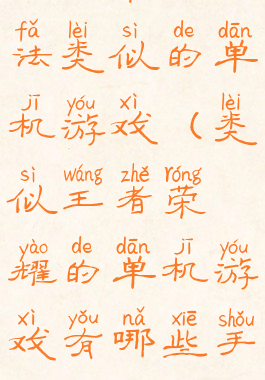 fǎ lèi sì de dān
法类似的单
jī yóu xì lèi
机游戏（类
sì wáng zhě róng
似王者荣
yào de dān jī yóu
耀的单机游
xì yǒu nǎ xiē shǒu
戏有哪些手